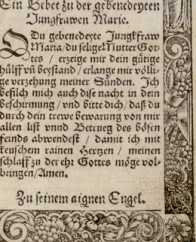 Ein Gebet zu der gebenedeyten
Jungfrawen Marie.
O Du gebenedeyte Jungkfraw
Maria / du selige Mutter Got-
tes / erzeige mir dein gütige
hülff vñ beystand / erlange mir völli-
ge verzeyhung meiner Sünden. Ich
befilch mich auch dise nacht in dein
beschirmung / vnd bitte dich / daß du
durch dein trewe bewarung von mir
allen list vnnd Betrueg des bösen
feinds abwendest / damit ich mit
keuschem rainen Hertzen / meinen
schlaff zu der ehr Gottes möge vol-
bringen / Amen.
Zu seinem aignen Engel.